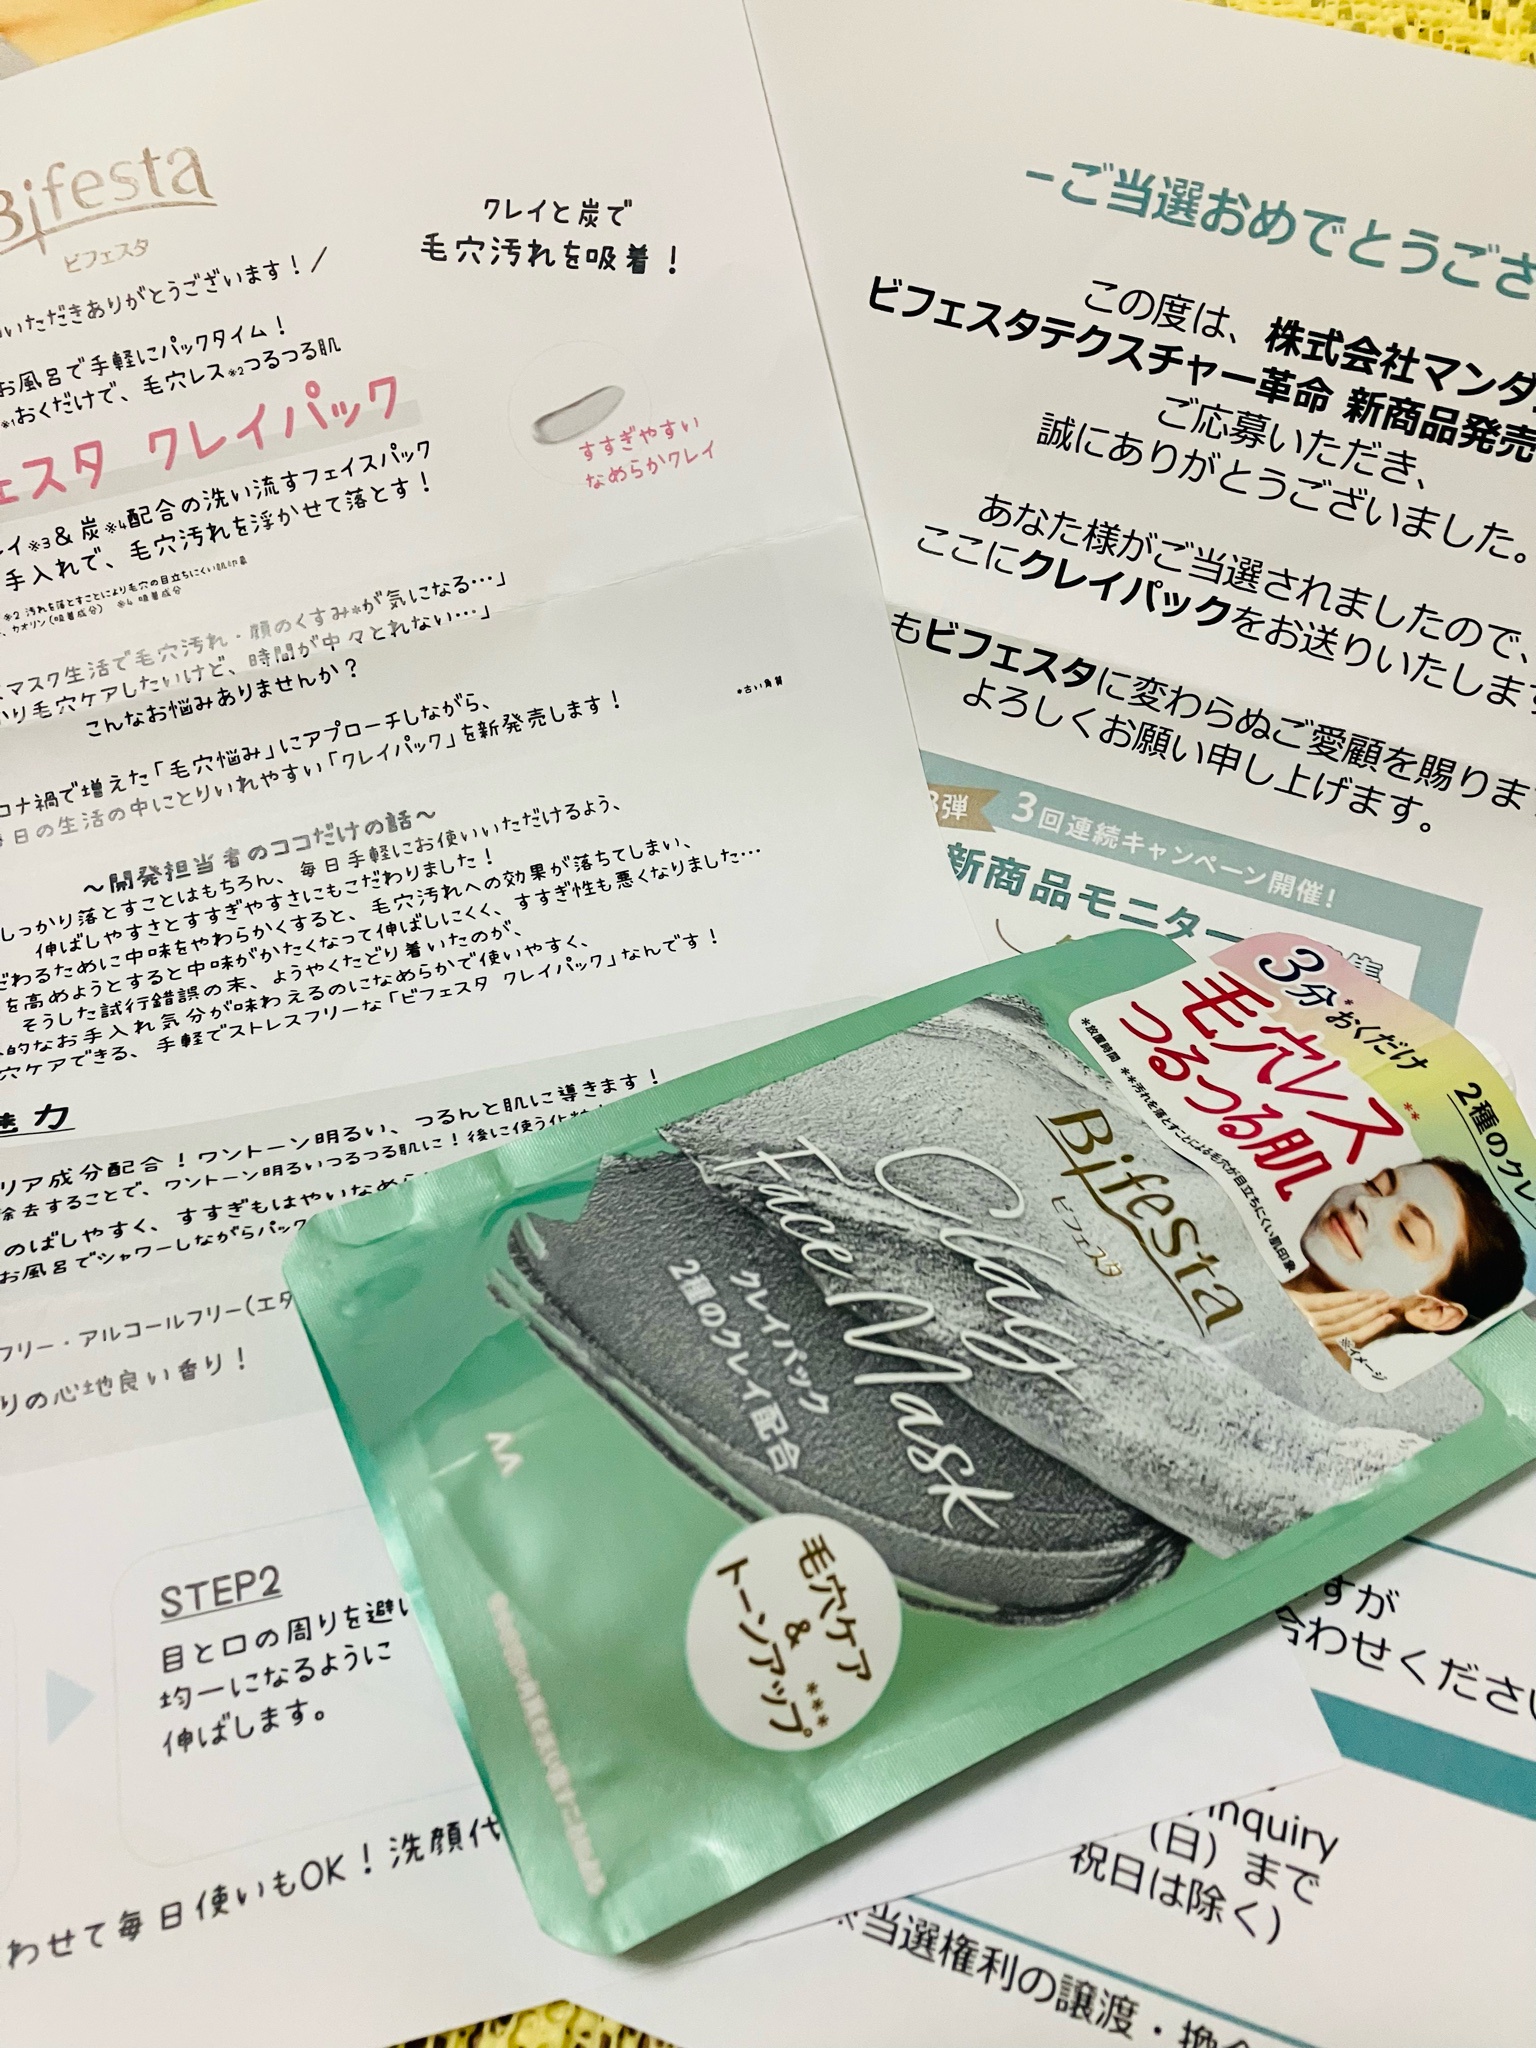 Bifesta
ビフェスタ
いただきありがとうございます！／
お風呂で手軽にパックタイム！
※1おくだけで、毛穴レス※2つるつる肌
ェスタ クレイパック
イ※3＆炭※4配合の洗い流すフェイスパック
手入れで、毛穴汚れを浮かせて落とす！
※2 汚れを落とすことにより毛穴の目立ちにくい肌印象
カオリン（吸着成分） ※4 吸着成分
マスク生活で毛穴汚れ・顔のくすみ*が気になる…」
り毛穴ケアしたいけど、時間が中々とれない…」
こんなお悩みありませんか？
*古い角質
ロナ禍で増えた「毛穴悩み」にアプローチしながら、
毎日の生活の中にとりいれやすい「クレイパック」を新発売します！
～開発担当者のココだけの話～
しっかり落とすことはもちろん、毎日手軽にお使いいただけるよう、
伸ばしやすさとすすぎやすさにもこだわりました！
だわるために中味をやわらかくすると、毛穴汚れへの効果が落ちてしまい、
を高めようとすると中味がかたくなって伸ばしにくく、すすぎ性も悪くなりました…
そうした試行錯誤の末、ようやくたどり着いたのが、
的なお手入れ気分が味わえるのになめらかで使いやすく、
穴ケアできる、手軽でストレスフリーな「ビフェスタ クレイパック」なんです！
魅力
リア成分配合！ワントーン明るい、つるんと肌に導きます！
除去することで、ワントーン明るいつるつる肌に！後に使う化粧
のばしやすく、すすぎもはやいなめ
お風呂でシャワーしながらパック
フリー・アルコールフリー（エタ
りの心地良い香り！
STEP2
目と口の周りを避け
均一になるように
伸ばします。
わせて毎日使いもOK！洗顔代
クレイと炭で
毛穴汚れを吸着！
すすぎやすい
なめらかクレイ
－ご当選おめでとうござ
この度は、株式会社マンダ
ビフェスタテクスチャー革命 新商品発売
ご応募いただき、
誠にありがとうございました。
あなた様がご当選されましたので、
ここにクレイパックをお送りいたします
もビフェスタに変わらぬご愛顧を賜りま
よろしくお願い申し上げます。
3弾
3回連続キャンペーン開催！
新商品モニター
集
すが
合わせください
inquiry
（日）まで
祝日は除く）
※当選権利の譲渡・換金
3分*おくだけ
毛穴レス**
つるつる肌
*放置時間 **汚れを落とすことによる毛穴が目立ちにくい肌印象
2種のクレ
※イメージ
Bifesta
ビフェスタ
Clay
Face Mask
クレイパック
2種のクレイ配合
毛穴ケア
&
トーンアップ***